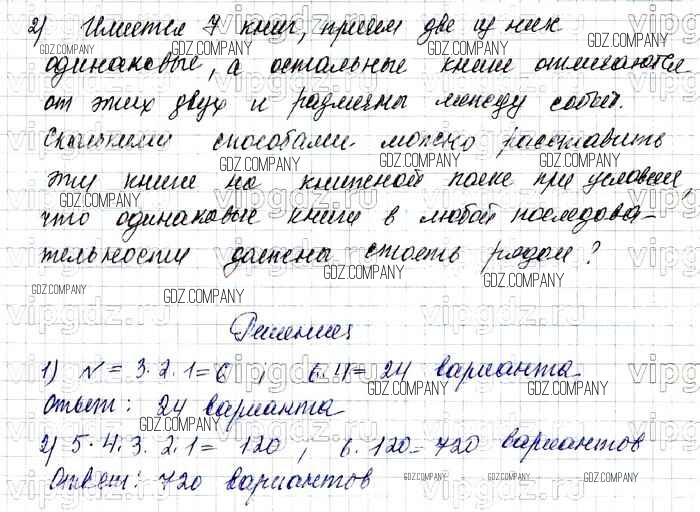 2) Имеется 7 книг, причем две из них
одинаковые, а остальные книги отличаются
от этих двух и различны между собой.
Сколькими способами можно расставить
эти книги на книжной полке при условии,
что одинаковые книги в любой последова-
тельности должны стоять рядом?
Решение
1) N = 3·2·1=6 , 6·4=24 варианта
Ответ: 24 варианта
2) 5·4·3·2·1= 120 , 6·120=720 вариантов
Ответ: 720 вариантов
GDZ.COMPANY
vipgdz.ru